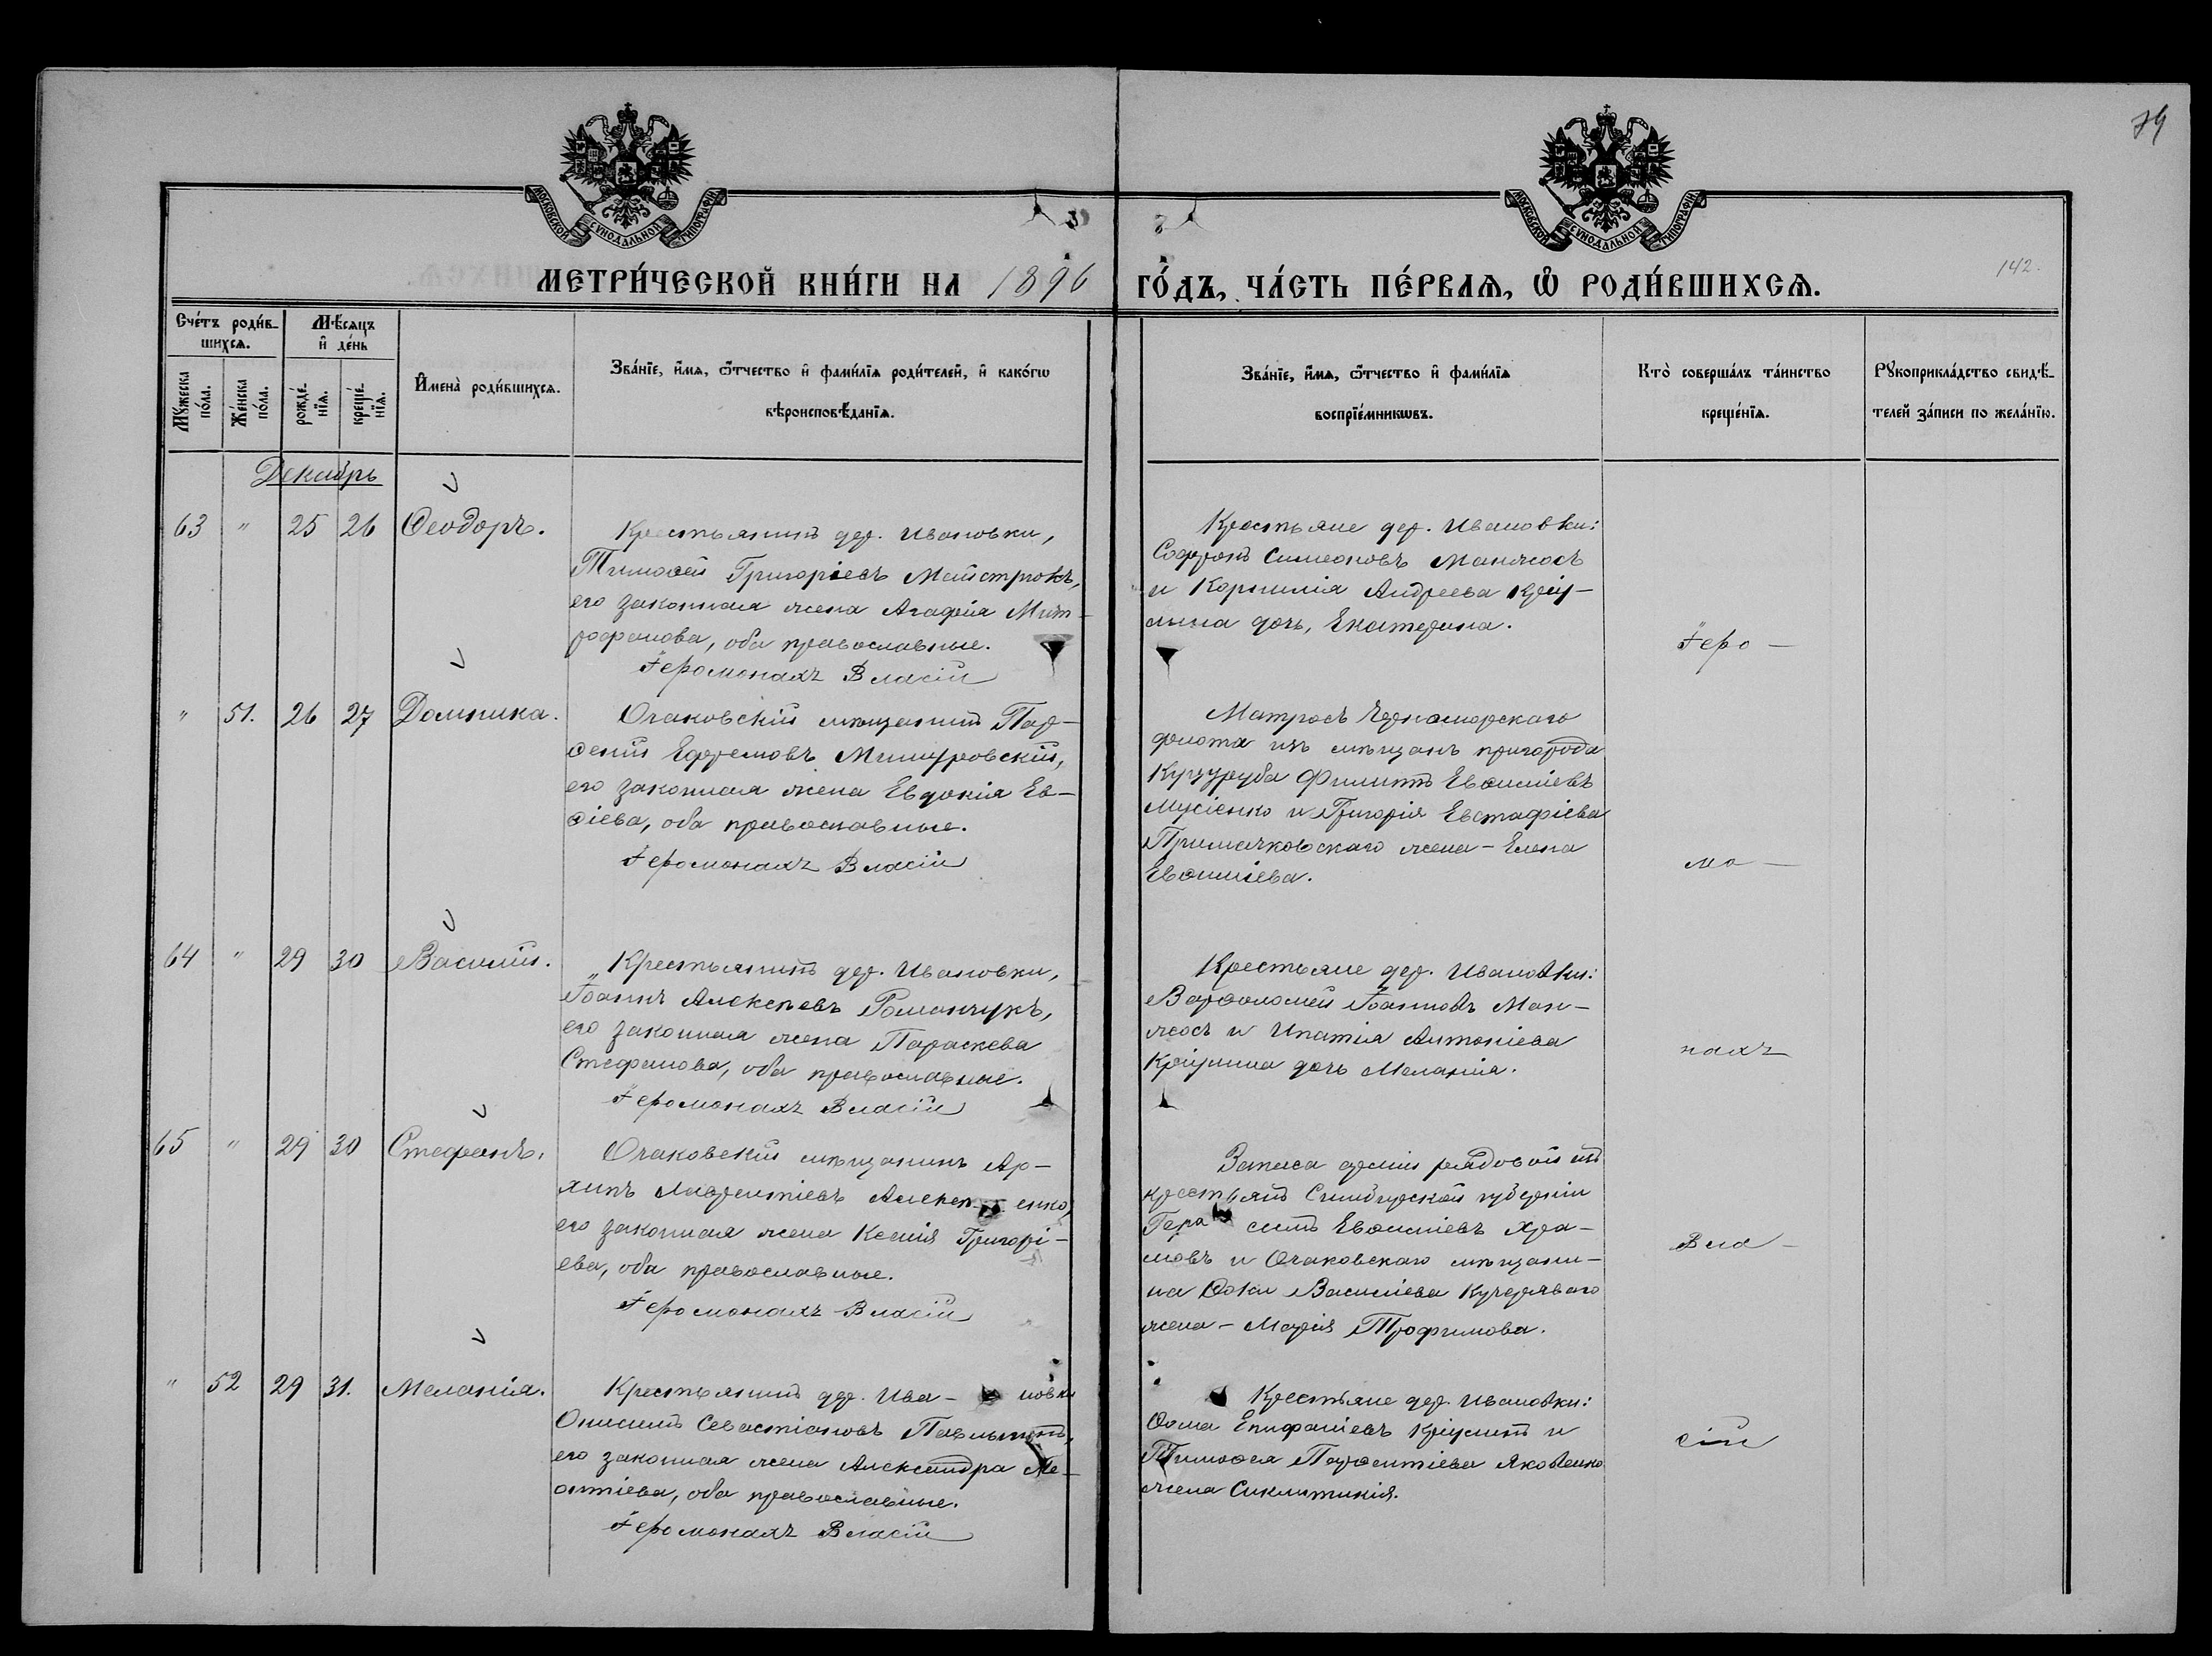 74
МОСКОВСКОЙ СѴНОДАЛЬНОЙ ТИПОГРАФІИ
МОСКОВСКОЙ СѴНОДАЛЬНОЙ ТИПОГРАФІИ
142.
МЕТРИ́ЧЕСКОЙ КНИ́ГИ НА 1896 ГО́ДЪ, ЧА́СТЬ ПЕ́РВАѦ, Ѡ҆ РОДИ́ВШИХСѦ.
Сче́тъ роди́в-
шихсѧ.
Мꙋ́жеска по́ла.
Же́нска по́ла.
Мѣ́сѧцъ
и҆ де́нь
рожде́-
нїѧ.
креще́-
нїѧ.
И҆мена̀ роди́вшихсѧ.
Зва́нїе, и҆́мѧ, ѻ҆́тчество и҆ фами́лїѧ роди́телей, и҆ како́гѡ
вѣроисповѣ́данїѧ.
Зва́нїе, и҆́мѧ, ѻ҆́тчество и҆ фами́лїѧ
воспрїе́мникѡвъ.
Кто̀ соверша́лъ та́инство
креще́нїѧ.
Рꙋкоприкла́дство свидѣ́-
телей за́писи по жела́нїю.
Декабрь
63 " 25 26 Ѳеодоръ.
Крестьянинъ дер. Ивановки,
Тимоѳей Григоріевъ Майстрокъ,
его законная жена Агафія Мит-
рофанова, оба православные.
Іеромонахъ Власій
Крестьяне дер. Ивановки:
Софронъ Симеоновъ Манжосъ
и Корнилія Андреева Кріу-
лина дочь, Екатерина.
Іеро-
" 51. 26 27 Домника.
Очаковскій мѣщанинъ Пар-
ѳеній Ефремовъ
его законная жена Евдокія Ев-
ѳіева, оба православные.
Іеромонахъ Власій
Матросъ Черноморскаго
флота изъ мѣщанъ пригорода
Куцуруба Филиппъ Евѳиміевъ
Мусіенко и Григорія Евстафіева
Примачковскаго жена - Елена
Евѳиміева.
мо-
64 " 29 30 Василій.
Крестьянинъ дер. Ивановки,
Іоаннъ Алексѣевъ Романчукъ,
его законная жена Параскева
Стефанова, оба православные.
Іеромонахъ Власій
Крестьяне дер. Ивановки:
Варѳоломей Іоанновъ Ман-
жосъ и Ипатія Антоніева
Кріулина дочь Меланія.
нахъ
65 " 29 30 Стефанъ.
Очаковскій мѣщанинъ Ар-
хипъ Лаврентіевъ Алексѣенко,
его законная жена Ксенія Григорі-
ева, оба православные.
Іеромонахъ Власій
Запаса арміи рядовой изъ
крестьянъ Симбирской губерніи
Герасимъ Евѳиміевъ Хра-
мовъ и Очаковскаго мѣщани-
на Ѳоки Василіева Кучеряваго
жена - Марія Трофимова.
Вла-
" 52 29 31. Меланія.
Крестьянинъ дер. Ива- новки
Онисимъ Севастіановъ
его законная жена Александра Ле-
онтіева, оба православные.
Іеромонахъ Власій
Крестьяне дер. Ивановки:
Ѳома Епифаніевъ Кріулинъ и
Тимоѳея Парѳентіева Яковенко
жена Синклитикія.
сій